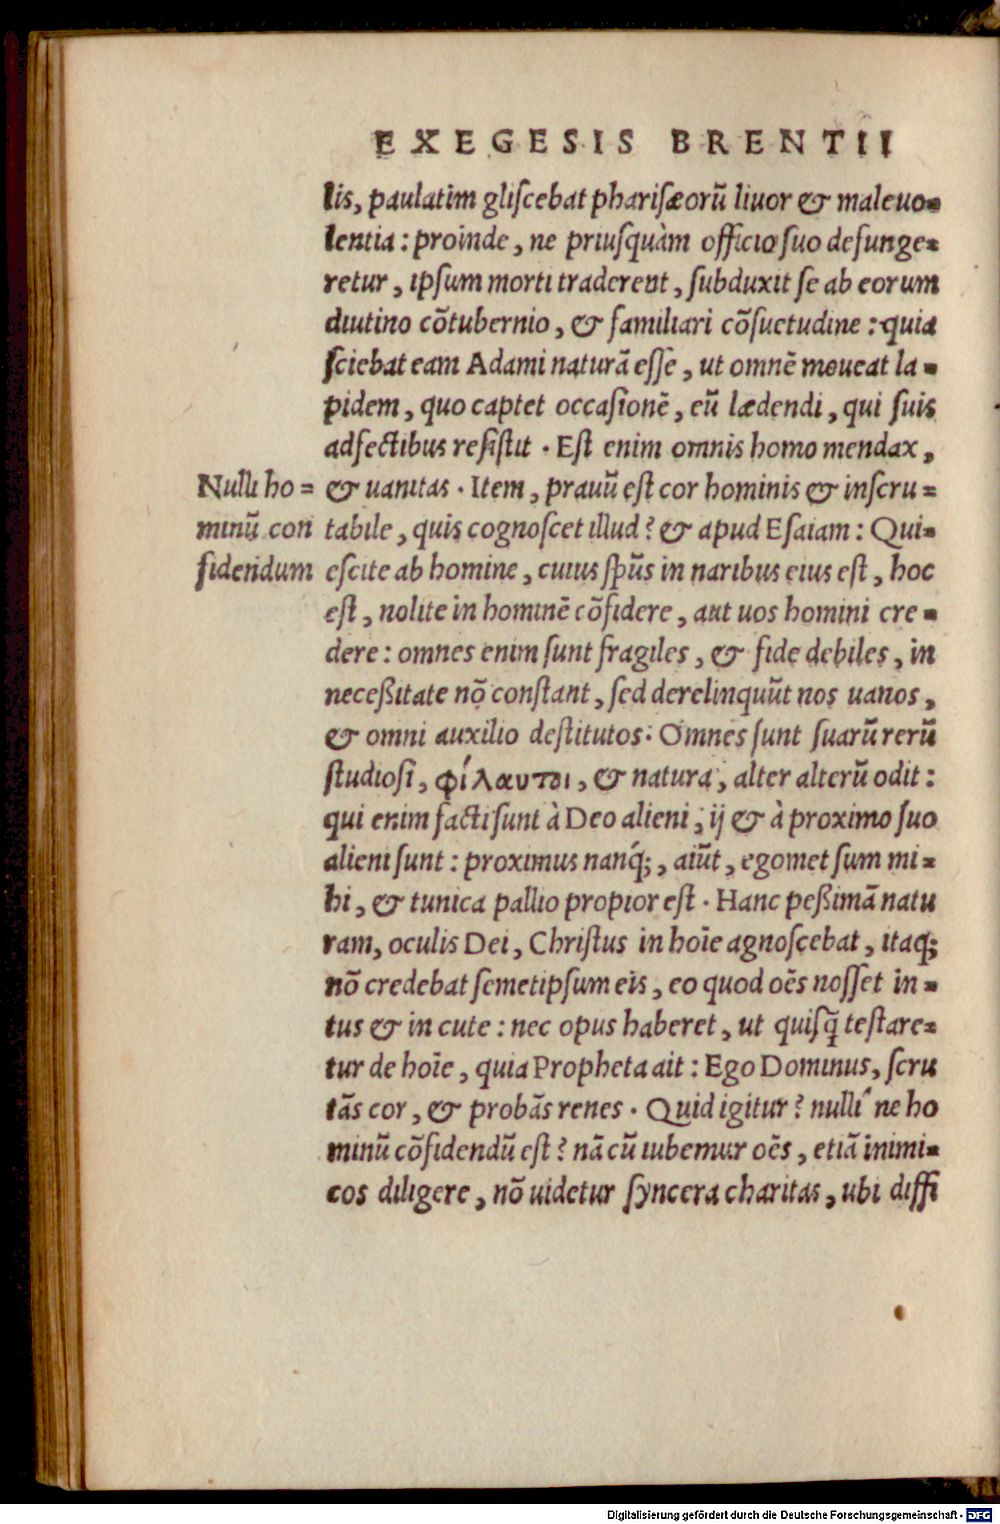 EXEGESIS BRENTII
lis, paulatim gliſcebat phariſæorũ liuor & maleuo=
lentia : proinde, ne priuſquàm officio ſuo defunge=
retur, ipſum morti traderent, ſubduxit ſe ab eorum
diutino cõtubernio, & familiari cõſuetudine : quia
ſciebat eam Adami naturã eſſe, ut omnẽ moueat la=
pidem, quo captet occaſionẽ, eũ lædendi, qui ſuis
adfectibus reſiſtit. Eſt enim omnis homo mendax,
Nulli ho=
minũ con
fidendum
& uanitas. Item, prauũ eſt cor hominis & inſcru=
tabile, quis cognoſcet illud? & apud Eſaiam : Qui=
eſcite ab homine, cuius ſpũs in naribus eius eſt, hoc
eſt, nolite in hominẽ cõfidere, aut uos homini cre=
dere : omnes enim ſunt fragiles, & fide debiles, in
neceßitate nõ conſtant, ſed derelinquũt nos uanos,
& omni auxilio deſtitutos. Omnes ſunt ſuarũ rerũ
ſtudioſi, φίλαυτοι, & natura, alter alterũ odit :
qui enim facti ſunt à Deo alieni, ij & à proximo ſuo
alieni ſunt : proximus nanq́;, aiũt, egomet ſum mi=
hi, & tunica pallio propior eſt. Hanc peßimã natu
ram, oculis Dei, Chriſtus in hoĩe agnoſcebat, itaq;
nõ credebat ſemetipſum eis, eo quod oẽs noſſet in=
tus & in cute : nec opus haberet, ut quiſq̃ teſtare=
tur de hoĩe, quia Propheta ait : Ego Dominus, ſcru
tãs cor, & probãs renes. Quid igitur? nulli ne ho
minũ cõfidendũ eſt? nã cũ iubemur oẽs, etiã inimi=
cos diligere, nõ uidetur ſyncera charitas, ubi diffi
Digitalisierung gefördert durch die Deutsche Forschungsgemeinschaft - DFG